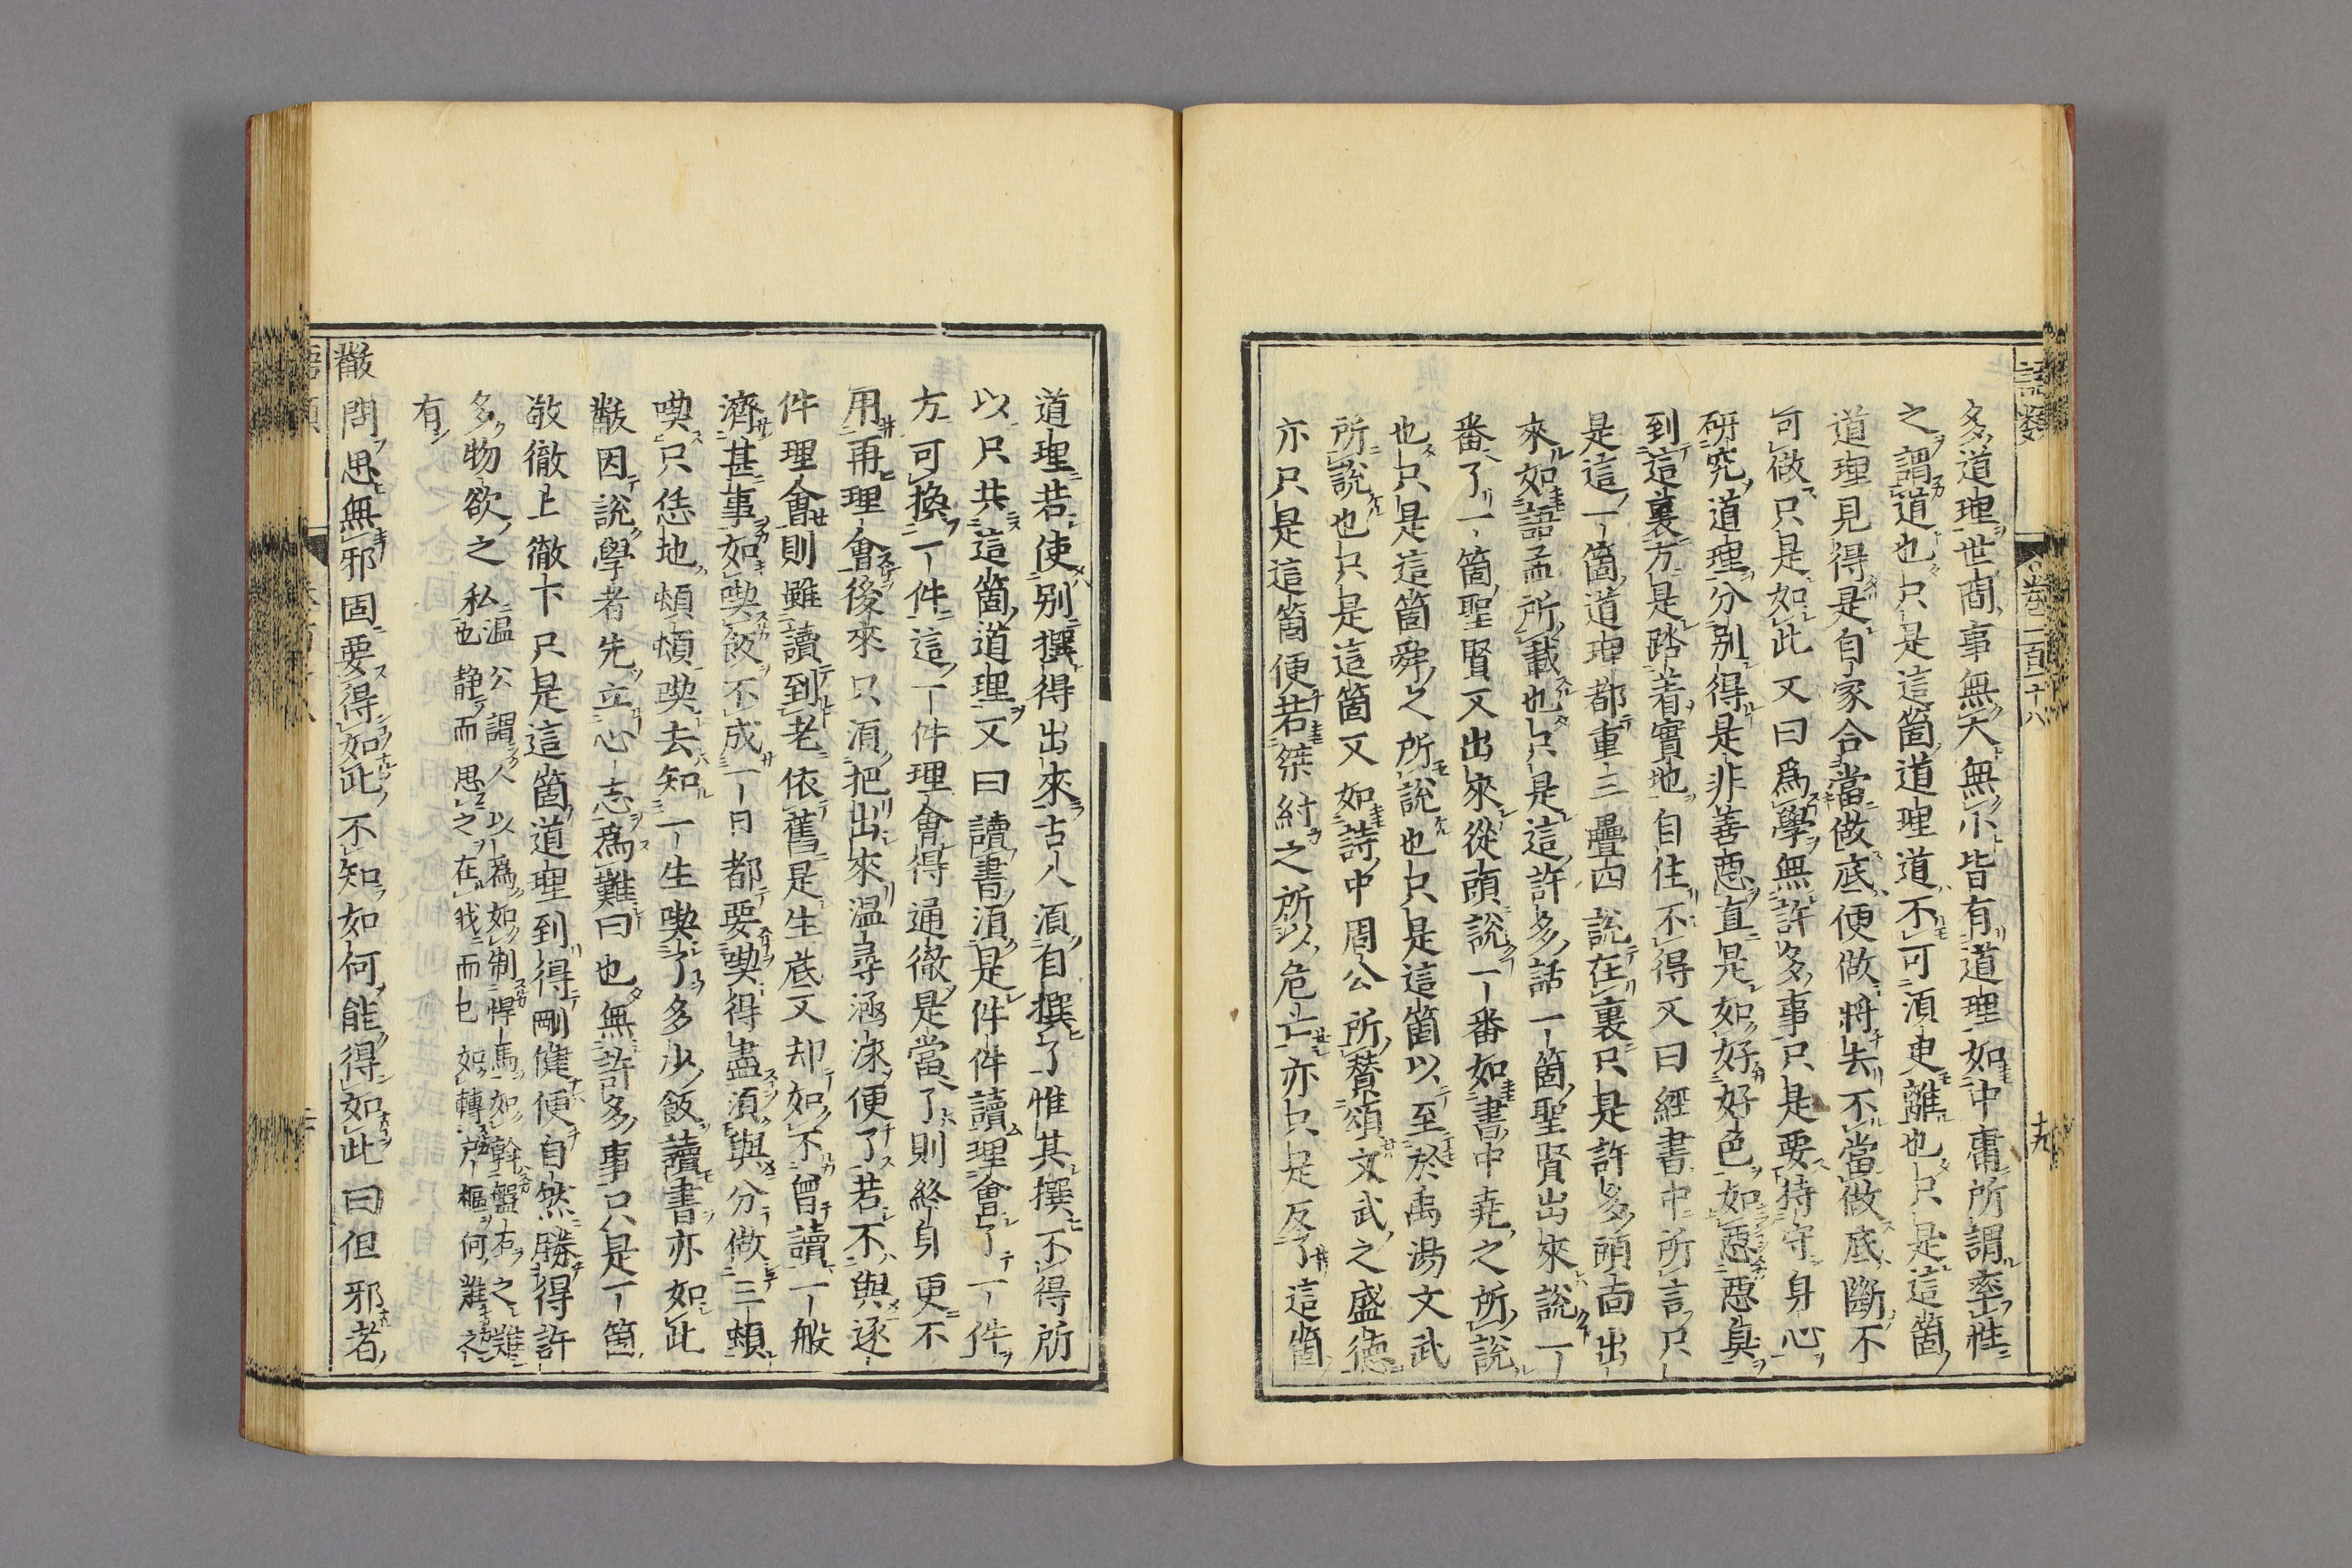 語類
卷一百十八
十九
多道理世間事無大無小皆有道理如中庸所謂率性
之謂道也只是這箇道理道不可須臾離也只是這箇
道理見得是自家合當做底便做將去不當做底斷不
可做只是如此又曰爲學無許多事只是要持守身心
研究道理分別得是非善惡直是如好好色如惡惡臭
到這裏方是踏著實地自住不得又曰經書中所言只
是這一箇道理都重三疊四說在裏只是許多頭面出
來如語孟所載也只是這許多話一箇聖賢出來說一
番了一箇聖賢又出來從頭說一番如書中堯之所說
也只是這箇舜之所說也只是這箇以至於禹湯文武
所說也只是這箇又如詩中周公所贊頌文武之盛德
亦只是這箇便若桀紂之所以危亡亦只是反了這箇
道理若使別撰得出來古人須自撰了惟其撰不得所
以只共這箇道理又曰讀書須是件件讀理會了一件
方可換一件這一件理會得通徹是當了則終身更不
用再理會後來只須把出來溫尋涵泳便了若不與逐
件理會則雖讀到老依舊是生底又却如不曾讀一般
濟甚事如喫飯不成一日都要喫得盡須與分做三頓
喫只恁地頓頓喫去知一生喫了多少飯讀書亦如此
黻因說學者先立心志爲難曰也無許多事只是一箇
敬徹上徹下只是這箇道理到得剛健便自然勝得許
多物欲之私溫公謂人以爲如制悍馬如斡盤石之難
也靜而思之在我而已如轉戶樞何難之
有
黻問思無邪固要得如此不知如何能得如此曰但邪者